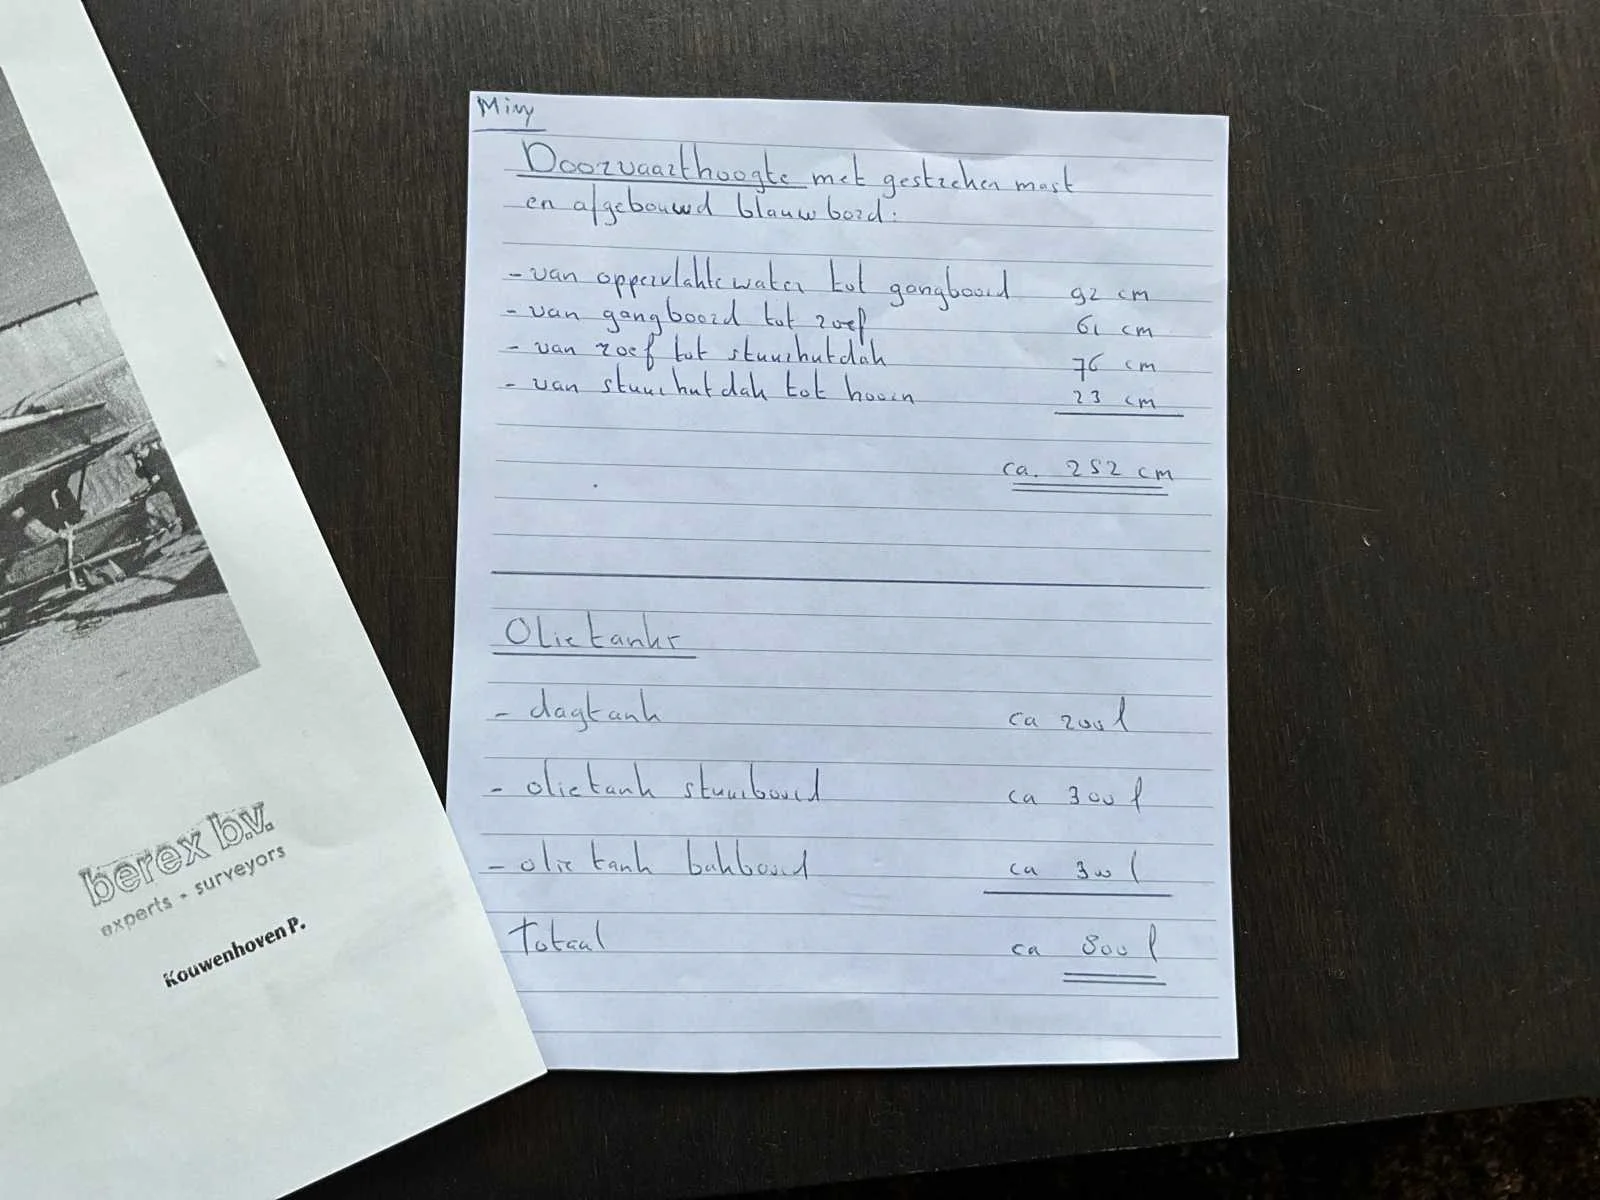 Doorvaarthoogte met gestreken mast
en afgebouwd blauw bord:
- van oppervlakte water tot gangboord 92 cm
- van gangboord tot roef 61 cm
- van roef tot stuurhutdak 76 cm
- van stuurhutdak tot hoorn 23 cm
ca. 252 cm
Olietanks
- dagtank ca 200 l
- olietank stuurboord ca 300 l
- olietank bakboord ca 300 l
Totaal ca 800 l
berex b.v.
experts - surveyors
Kouwenhoven P.